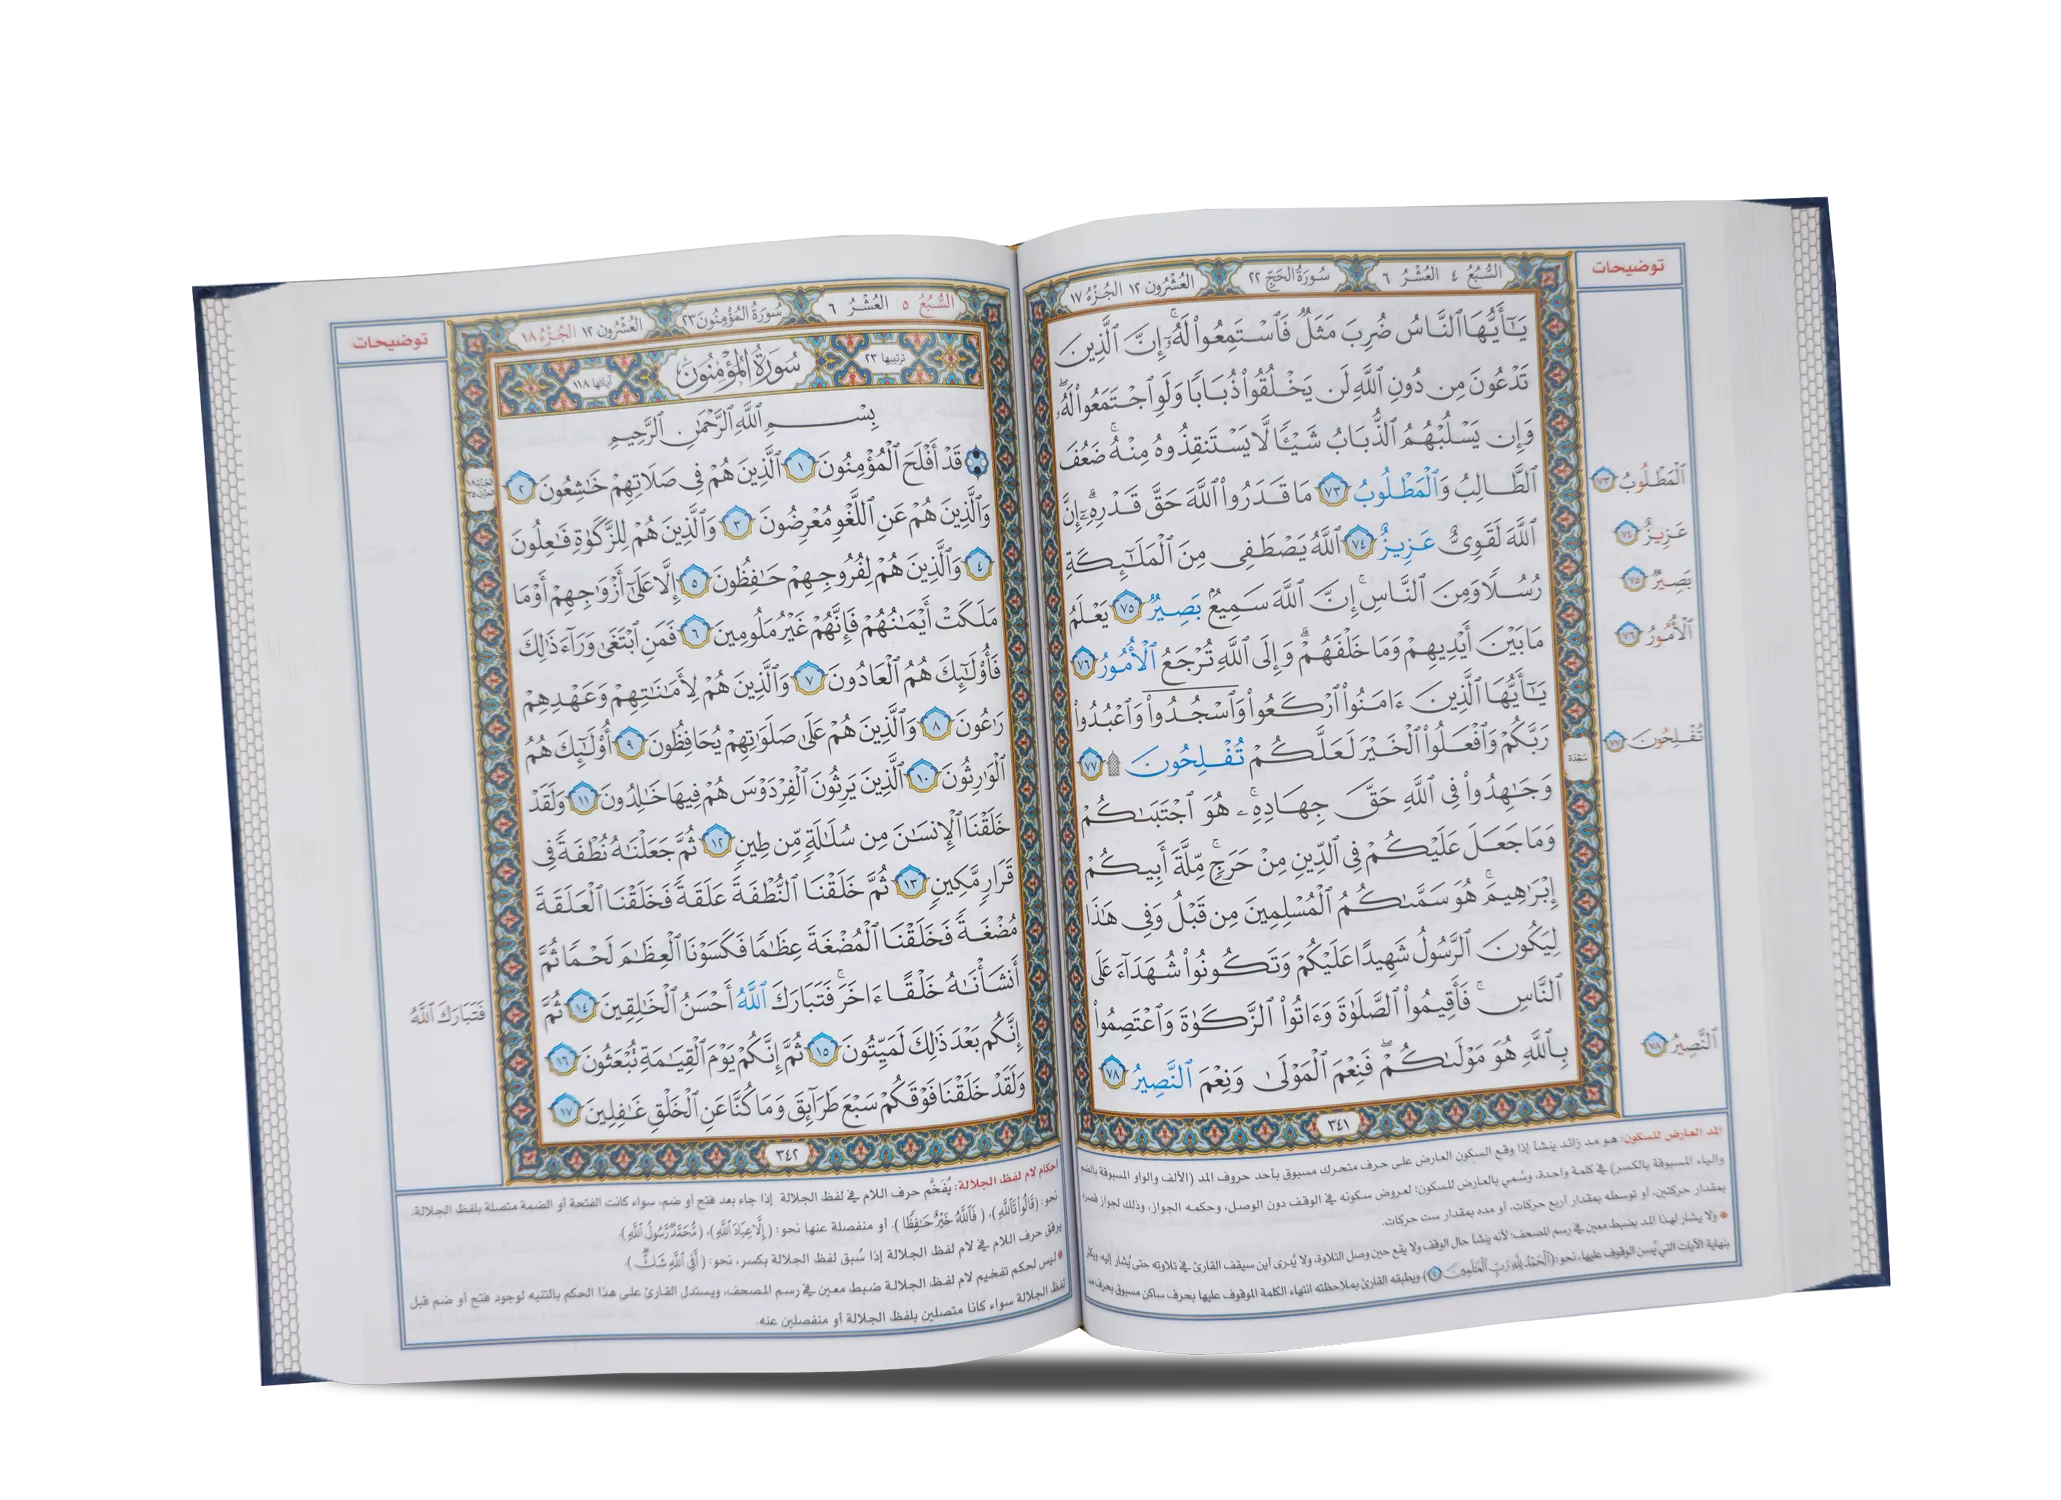 السُّبُعُ ٤ العُشْرُ ٦ سُورَةُ الحَجّ ٢٢ العُشْرُون ١٢ الجُزْءُ ١٧
توضيحات
يَـٰٓأَيُّهَا ٱلنَّاسُ ضُرِبَ مَثَلٌ فَٱسْتَمِعُوا۟ لَهُۥٓ ۚ إِنَّ ٱلَّذِينَ
تَدْعُونَ مِن دُونِ ٱللَّهِ لَن يَخْلُقُوا۟ ذُبَابًا وَلَوِ ٱجْتَمَعُوا۟ لَهُۥ ۖ
وَإِن يَسْلُبْهُمُ ٱلذُّبَابُ شَيْـًٔا لَّا يَسْتَنقِذُوهُ مِنْهُ ۚ ضَعُفَ
ٱلطَّالِبُ وَٱلْمَطْلُوبُ ٧٣ مَا قَدَرُوا۟ ٱللَّهَ حَقَّ قَدْرِهِۦٓ ۗ إِنَّ
ٱللَّهَ لَقَوِىٌّ عَزِيزٌ ٧٤ ٱللَّهُ يَصْطَفِى مِنَ ٱلْمَلَـٰٓئِكَةِ
رُسُلًا وَمِنَ ٱلنَّاسِ ۚ إِنَّ ٱللَّهَ سَمِيعٌۢ بَصِيرٌ ٧٥ يَعْلَمُ
مَا بَيْنَ أَيْدِيهِمْ وَمَا خَلْفَهُمْ ۗ وَإِلَى ٱللَّهِ تُرْجَعُ ٱلْأُمُورُ ٧٦
يَـٰٓأَيُّهَا ٱلَّذِينَ ءَامَنُوا۟ ٱرْكَعُوا۟ وَٱسْجُدُوا۟ وَٱعْبُدُوا۟
رَبَّكُمْ وَٱفْعَلُوا۟ ٱلْخَيْرَ لَعَلَّكُمْ تُفْلِحُونَ ۩ ٧٧
وَجَـٰهِدُوا۟ فِى ٱللَّهِ حَقَّ جِهَادِهِۦ ۚ هُوَ ٱجْتَبَىٰكُمْ
وَمَا جَعَلَ عَلَيْكُمْ فِى ٱلدِّينِ مِنْ حَرَجٍ ۚ مِّلَّةَ أَبِيكُمْ
إِبْرَٰهِيمَ ۚ هُوَ سَمَّىٰكُمُ ٱلْمُسْلِمِينَ مِن قَبْلُ وَفِى هَـٰذَا
لِيَكُونَ ٱلرَّسُولُ شَهِيدًا عَلَيْكُمْ وَتَكُونُوا۟ شُهَدَآءَ عَلَى
ٱلنَّاسِ ۚ فَأَقِيمُوا۟ ٱلصَّلَوٰةَ وَءَاتُوا۟ ٱلزَّكَوٰةَ وَٱعْتَصِمُوا۟
بِٱللَّهِ هُوَ مَوْلَىٰكُمْ ۖ فَنِعْمَ ٱلْمَوْلَىٰ وَنِعْمَ ٱلنَّصِيرُ ٧٨
ٱلْمَطْلُوبُ ٧٣
عَزِيزٌ ٧٤
بَصِيرٌ ٧٥
ٱلْأُمُورُ ٧٦
تُفْلِحُونَ ٧٧
ٱلنَّصِيرُ ٧٨
سَجْدَة
٣٤١
المد العارض للسكون: هو مد زائد ينشأ إذا وقع السكون العارض على حرف متحرك مسبوق بأحد حروف المد (الألف والواو المسبوقة بالضم
والياء المسبوقة بالكسر) في كلمة واحدة، وسُمي بالعارض للسكون؛ لعروض سكونه في الوقف دون الوصل، وحكمه الجواز، وذلك لجواز قصره
بمقدار حركتين، أو توسطه بمقدار أربع حركات، أو مده بمقدار ست حركات.
* ولا يشار لهذا المد بضبط معين في رسم المصحف؛ لأنه ينشأ حال الوقف ولا يقع حين وصل التلاوة، ولا يُدرى أين سيقف القارئ في تلاوته حتى يُشار إليه، ويكثر
بنهاية الآيات التي يُسن الوقوف عليها، نحو: (ٱلْحَمْدُ لِلَّهِ رَبِّ ٱلْعَـٰلَمِينَ ٢) ويطبقه القارئ بملاحظته انتهاء الكلمة الموقوف عليها بحرف ساكن مسبوق بحرف مد
السُّبُعُ ٥ العُشْرُ ٦ سُورَةُ المُؤْمِنُون ٢٣ العُشْرُون ١٢ الجُزْءُ ١٨
توضيحات
ترتيبها ٢٣ سُورَةُ الْمُؤْمِنُونَ آياتها ١١٨
بِسْمِ ٱللَّهِ ٱلرَّحْمَـٰنِ ٱلرَّحِيمِ
قَدْ أَفْلَحَ ٱلْمُؤْمِنُونَ ١ ٱلَّذِينَ هُمْ فِى صَلَاتِهِمْ خَـٰشِعُونَ ٢
وَٱلَّذِينَ هُمْ عَنِ ٱللَّغْوِ مُعْرِضُونَ ٣ وَٱلَّذِينَ هُمْ لِلزَّكَوٰةِ فَـٰعِلُونَ
٤ وَٱلَّذِينَ هُمْ لِفُرُوجِهِمْ حَـٰفِظُونَ ٥ إِلَّا عَلَىٰٓ أَزْوَٰجِهِمْ أَوْ مَا
مَلَكَتْ أَيْمَـٰنُهُمْ فَإِنَّهُمْ غَيْرُ مَلُومِينَ ٦ فَمَنِ ٱبْتَغَىٰ وَرَآءَ ذَٰلِكَ
فَأُو۟لَـٰٓئِكَ هُمُ ٱلْعَادُونَ ٧ وَٱلَّذِينَ هُمْ لِأَمَـٰنَـٰتِهِمْ وَعَهْدِهِمْ
رَٰعُونَ ٨ وَٱلَّذِينَ هُمْ عَلَىٰ صَلَوَٰتِهِمْ يُحَافِظُونَ ٩ أُو۟لَـٰٓئِكَ هُمُ
ٱلْوَٰرِثُونَ ١٠ ٱلَّذِينَ يَرِثُونَ ٱلْفِرْدَوْسَ هُمْ فِيهَا خَـٰلِدُونَ ١١ وَلَقَدْ
خَلَقْنَا ٱلْإِنسَـٰنَ مِن سُلَـٰلَةٍ مِّن طِينٍ ١٢ ثُمَّ جَعَلْنَـٰهُ نُطْفَةً فِى
قَرَارٍ مَّكِينٍ ١٣ ثُمَّ خَلَقْنَا ٱلنُّطْفَةَ عَلَقَةً فَخَلَقْنَا ٱلْعَلَقَةَ
مُضْغَةً فَخَلَقْنَا ٱلْمُضْغَةَ عِظَـٰمًا فَكَسَوْنَا ٱلْعِظَـٰمَ لَحْمًا ثُمَّ
أَنشَأْنَـٰهُ خَلْقًا ءَاخَرَ ۚ فَتَبَارَكَ ٱللَّهُ أَحْسَنُ ٱلْخَـٰلِقِينَ ١٤ ثُمَّ
إِنَّكُم بَعْدَ ذَٰلِكَ لَمَيِّتُونَ ١٥ ثُمَّ إِنَّكُمْ يَوْمَ ٱلْقِيَـٰمَةِ تُبْعَثُونَ ١٦
وَلَقَدْ خَلَقْنَا فَوْقَكُمْ سَبْعَ طَرَآئِقَ وَمَا كُنَّا عَنِ ٱلْخَلْقِ غَـٰفِلِينَ ١٧
فَتَبَارَكَ ٱللَّهُ
٣٤٢
أحكام لام لفظ الجلالة: يُفَخَّم حرف اللام في لفظ الجلالة إذا جاء بعد فتح أو ضم، سواء كانت الفتحة أو الضمة متصلة بلفظ الجلالة،
نحو: (قَالُوا۟ تَٱللَّهِ)، (فَٱللَّهُ خَيْرٌ حَـٰفِظًا)، أو منفصلة عنها نحو: (إِلَّا عِبَادَ ٱللَّهِ)، (مُّحَمَّدٌ رَّسُولُ ٱللَّهِ).
يرقق حرف اللام في لام لفظ الجلالة إذا سُبق لفظ الجلالة بكسر، نحو: (أَفِى ٱللَّهِ شَكٌّ).
* ليس لحكم تفخيم لام لفظ الجلالة ضبط معين في رسم المصحف، ويستدل القارئ على هذا الحكم بالتنبه لوجود فتح أو ضم قبل
لفظ الجلالة سواء كانا متصلين بلفظ الجلالة أو منفصلين عنه.